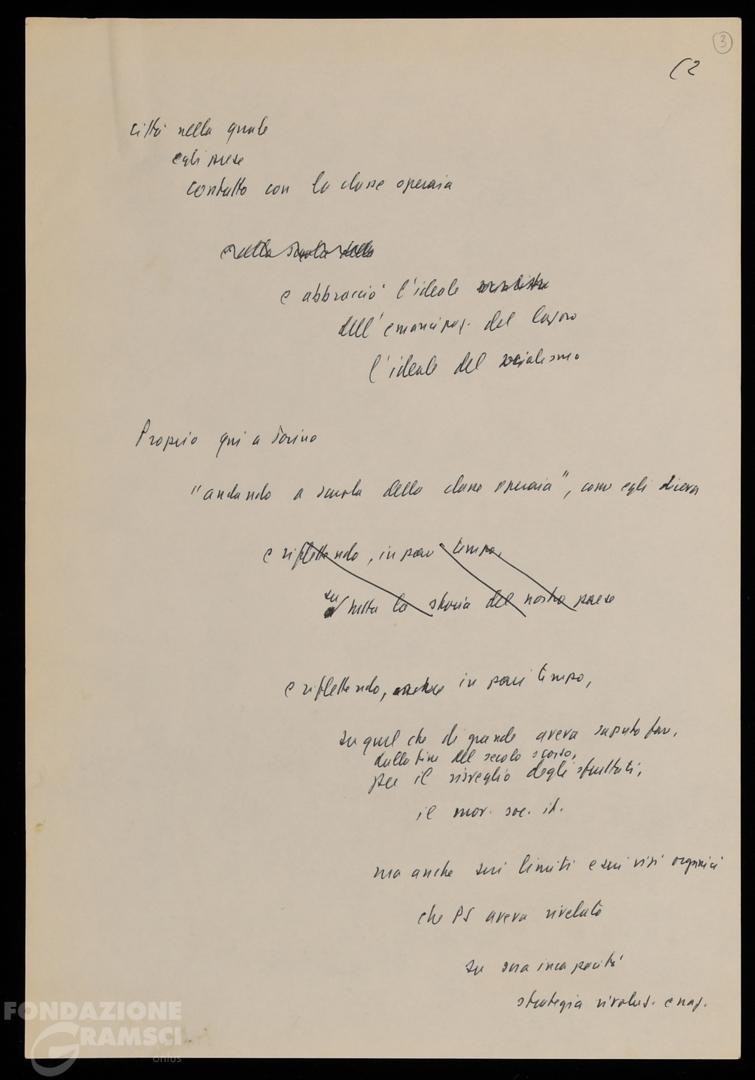 3
(2
città nella quale
egli prese
contatto con la classe operaia
e abbracciò l'ideale socialista
dell'emancipaz. del lavoro
l'ideale del socialismo
Proprio qui a Torino
"andando a scuola della classe operaia", come egli diceva
e riflettendo, in pari tempo,
su tutta la storia del nostro paese
e riflettendo, in pari tempo,
su quel che di grande aveva saputo fare,
dalla fine del secolo scorso,
per il risveglio degli sfruttati,
il mov. soc. it.
ma anche sui limiti e sui vizi organici
che PS aveva rivelato
su sua incapacità
strategia rivoluz. e naz.
FONDAZIONE
GRAMSCI
onlus